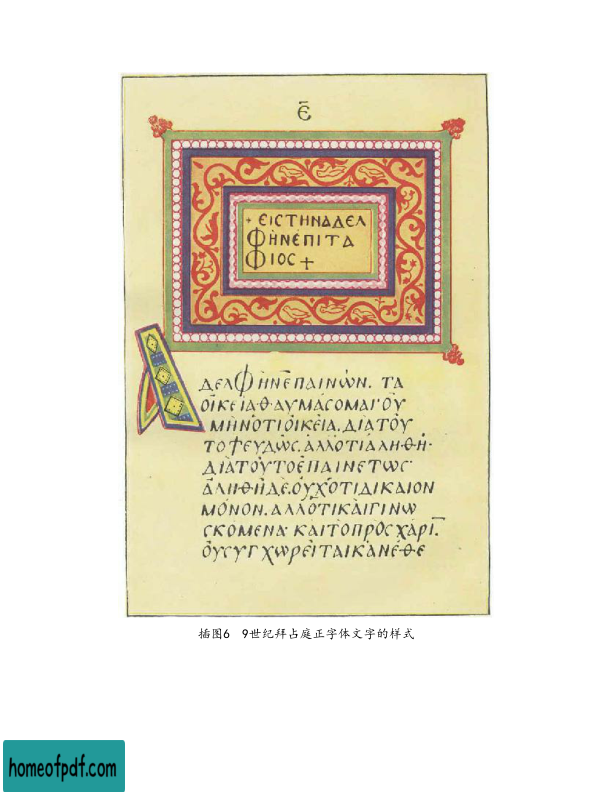 Ε̄
+ ΕΙСΤΗΝΑΔΕΛ
ΦΗΝΕΠΙΤΑ
ΦΙΟС +
ΑΔΕΛΦΗΝΕΠΑΙΝΩΝ. ΤΑ
ΟΙΚΕΙΑΘΑΥΜΑСΟΜΑΙ· ΟΥ
ΜΗΝΟΤΙΟΙΚΕΙΑ. ΔΙΑΤΟΥ
ΤΟΨΕΥΔΩС. ΑΛΛΟΤΙΑΛΗΘΗ·
ΔΙΑΤΟΥΤΟΕΠΑΙΝΕΤΩС·
ΑΛΗΘΗΔΕ. ΟΥΧΟΤΙΔΙΚΑΙΟΝ
ΜΟΝΟΝ. ΑΛΛΟΤΙΚΑΙΓΙΝΩ
СΚΟΜΕΝΑ· ΚΑΙΤΟΠΡΟСΧΑΡΙ̅.
ΟΥСΥΓΧΩΡΕΙΤΑΙΚΑΝΕΘΕ
插图6 9世纪拜占庭正字体文字的样式
homeofpdf.com